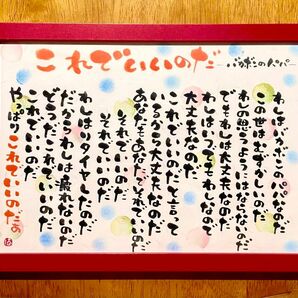 これでいいのだ
―バカボンのパパ―
わしはバカボンのパパなのだ
この世はむずかしいのだ
わしの思うようにはいかないのだ
でもわしは大丈夫なのだ
わしはいつでもわしなので
大丈夫なのだ
これでいいのだと言って
いるから大丈夫なのだ
あなたもあなたでそれでいいのだ
それでいいのだ
それでいいのだ
わしはリタイヤしたのだ
だからわしは疲れないのだ
どうだこれでいいのだ
これでいいのだ
やっぱりこれでいいのだ